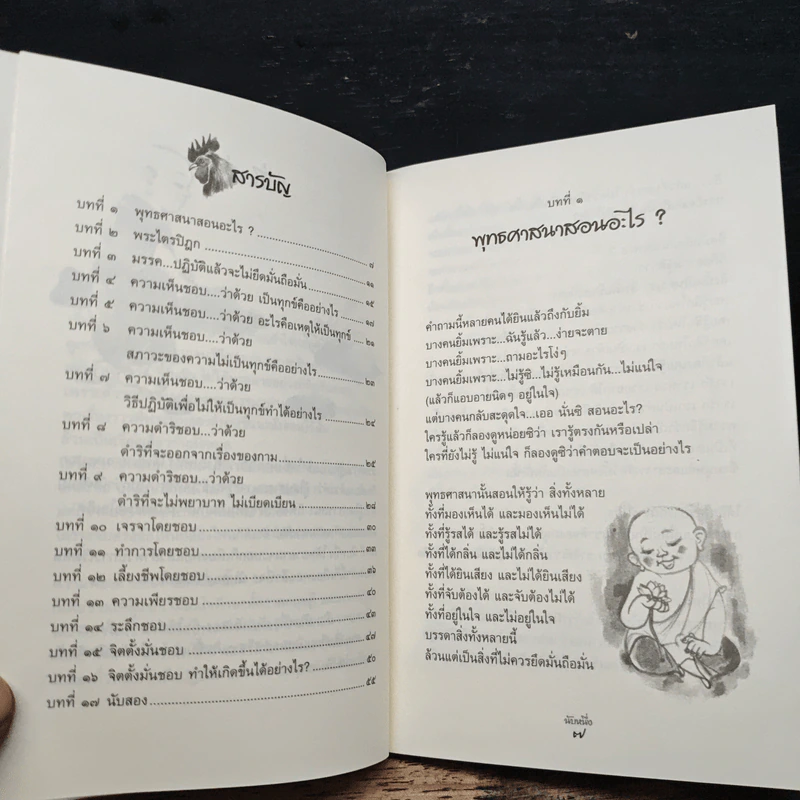 สารบัญ
บทที่ ๑ พุทธศาสนาสอนอะไร ? ๗
บทที่ ๒ พระไตรปิฎก ๑๑
บทที่ ๓ มรรค...ปฏิบัติแล้วจะไม่ยึดมั่นถือมั่น ๑๕
บทที่ ๔ ความเห็นชอบ....ว่าด้วย เป็นทุกข์คืออย่างไร ๑๗
บทที่ ๕ ความเห็นชอบ....ว่าด้วย อะไรคือเหตุให้เป็นทุกข์ ๒๑
บทที่ ๖ ความเห็นชอบ....ว่าด้วย
สภาวะของความไม่เป็นทุกข์คืออย่างไร ๒๓
บทที่ ๗ ความเห็นชอบ....ว่าด้วย
วิธีปฏิบัติเพื่อไม่ให้เป็นทุกข์ทำได้อย่างไร ๒๔
บทที่ ๘ ความดำริชอบ...ว่าด้วย
ดำริที่จะออกจากเรื่องของกาม ๒๕
บทที่ ๙ ความดำริชอบ...ว่าด้วย
ดำริที่จะไม่พยาบาท ไม่เบียดเบียน ๒๘
บทที่ ๑๐ เจรจาโดยชอบ ๓๐
บทที่ ๑๑ ทำการโดยชอบ ๓๓
บทที่ ๑๒ เลี้ยงชีพโดยชอบ ๓๖
บทที่ ๑๓ ความเพียรชอบ ๔๐
บทที่ ๑๔ ระลึกชอบ ๔๓
บทที่ ๑๕ จิตตั้งมั่นชอบ ๔๗
บทที่ ๑๖ จิตตั้งมั่นชอบ ทำให้เกิดขึ้นได้อย่างไร? ๕๐
บทที่ ๑๗ นับสอง ๕๕
บทที่ ๑
พุทธศาสนาสอนอะไร ?
คำถามนี้หลายคนได้ยินแล้วถึงกับยิ้ม
บางคนยิ้มเพราะ...ฉันรู้แล้ว...ง่ายจะตาย
บางคนยิ้มเพราะ...ถามอะไรโง่ๆ
บางคนยิ้มเพราะ...ไม่รู้ซิ...ไม่รู้เหมือนกัน...ไม่แน่ใจ
(แล้วก็แอบอายนิดๆ อยู่ในใจ)
แต่บางคนกลับสะดุดใจ...เออ นั่นซิ สอนอะไร?
ใครรู้แล้วก็ลองดูหน่อยซิว่า เรารู้ตรงกันหรือเปล่า
ใครที่ยังไม่รู้ ไม่แน่ใจ ก็ลองดูซิว่าคำตอบจะเป็นอย่างไร
พุทธศาสนานั้นสอนให้รู้ว่า สิ่งทั้งหลาย
ทั้งที่มองเห็นได้ และมองเห็นไม่ได้
ทั้งที่รู้รสได้ และรู้รสไม่ได้
ทั้งที่ได้กลิ่น และไม่ได้กลิ่น
ทั้งที่ได้ยินเสียง และไม่ได้ยินเสียง
ทั้งที่จับต้องได้ และจับต้องไม่ได้
ทั้งที่อยู่ในใจ และไม่อยู่ในใจ
บรรดาสิ่งทั้งหลายนี้
ล้วนแต่เป็นสิ่งที่ไม่ควรยึดมั่นถือมั่น
นับหนึ่ง
๗